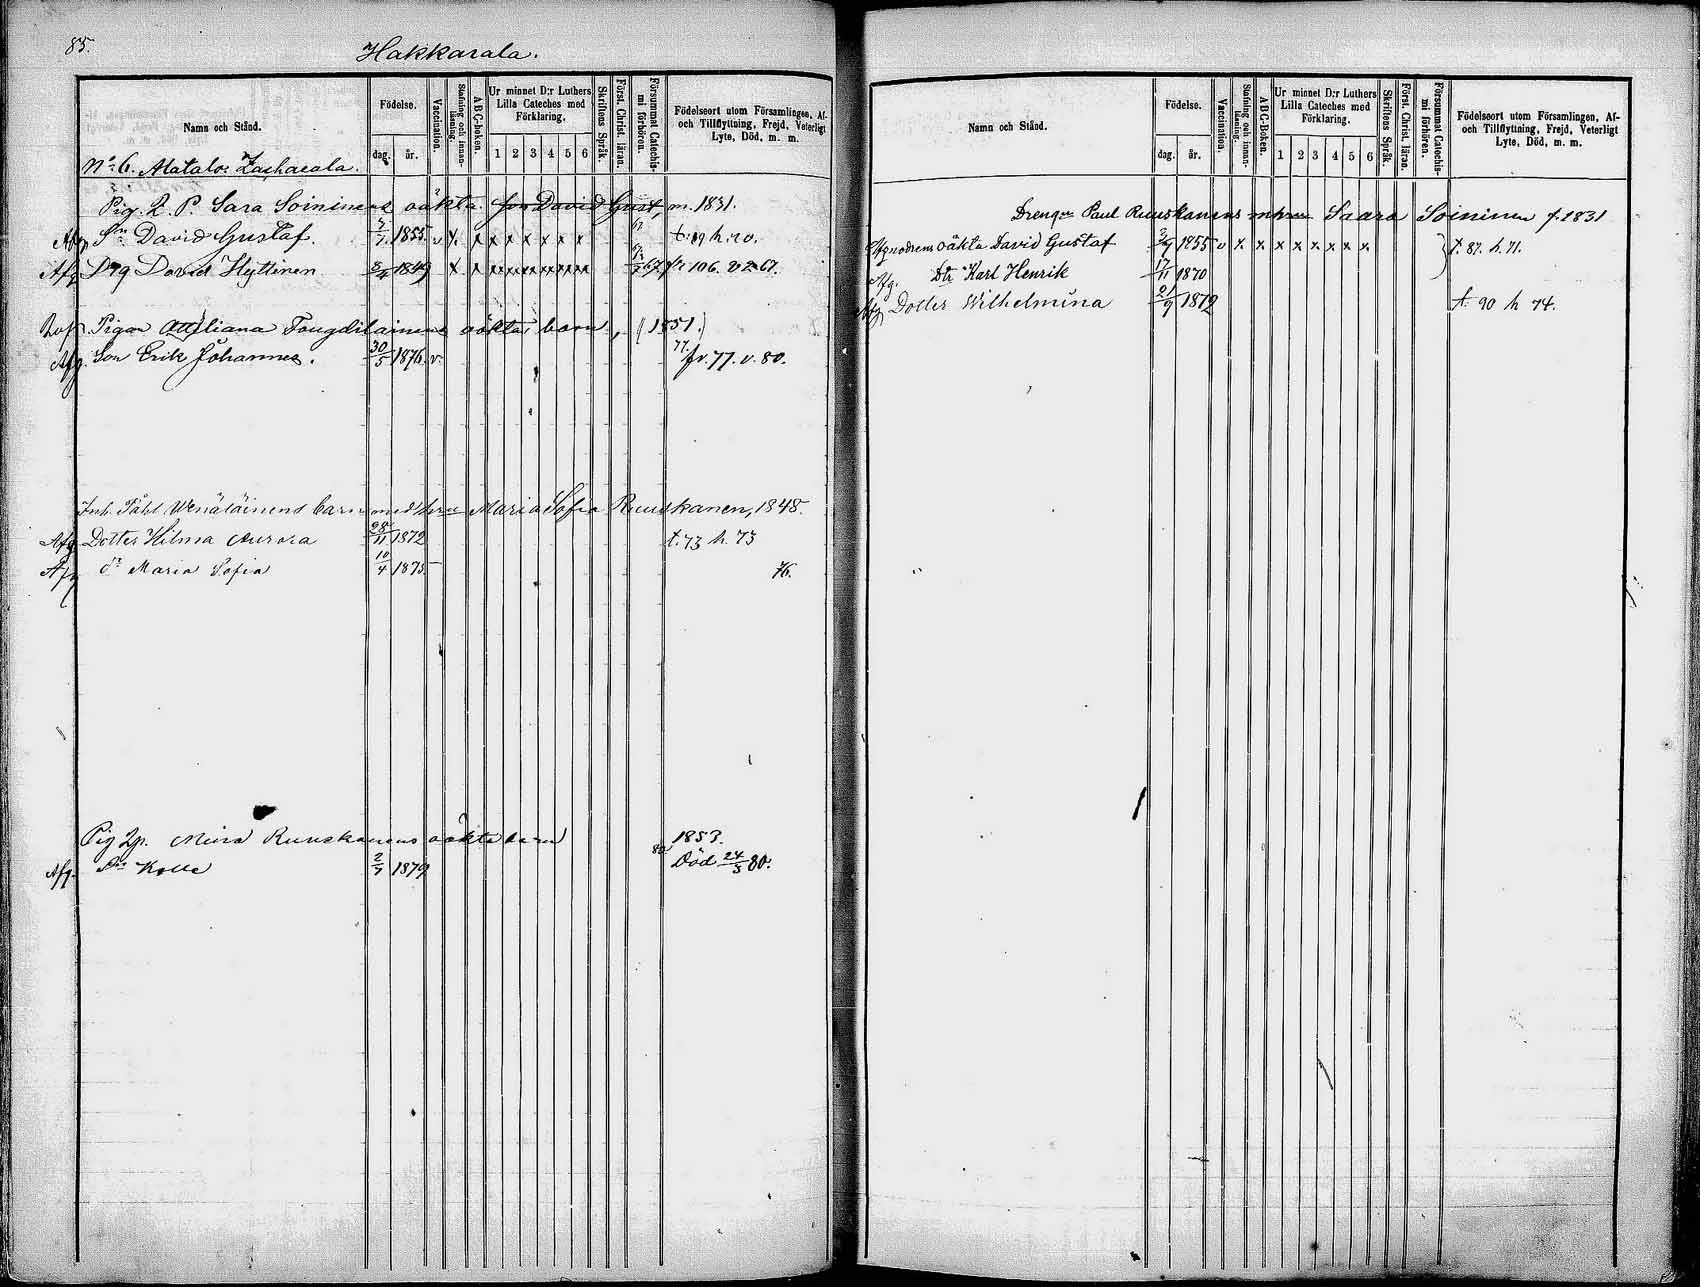 85.
Hakkarala.
Namn och Stånd.
Födelse.
dag. år.
Vaccination.
Stafning och innanläsning.
ABC-boken.
Ur minnet D:r Luthers Lilla Cateches med Förklaring.
1 2 3 4 5 6
Skriftens Språk.
Först. Christ. läran.
Försummat Catechismi förhören.
Födelseort utom Församlingen, Af- och Tillflyttning, Frejd, Veterligt Lyte, Död, m. m.
No 6. Alatalo
Pig. L. P. Sara Soininens oäkta son David Gust, m. 1831.
Afg Sn David Gustaf. 1855 v x x x x x x x x
Afg Drg David Hyttinen 1849 x x fr 106. 67.
Pigan oäkta barn, (1851.)
Afg. Son Erik Johannes. 30/5 1876 v 77. fr. 77. v. 80.
Inh. Påhl Wenäläinens barn med hru Maria Sofia Ruuskanen, 1848.
Afg Dotter Hilma Aurora 28/11 1872 t. 73 h. 73
Afg Dr Maria Sofia 10/4 1875 76.
Pig Lp. Ruuskanens oäkta barn 1853.
Afg. 2/7 1879 80. Död 24/3 80.
Namn och Stånd.
Födelse.
dag. år.
Vaccination.
Stafning och innanläsning.
ABC-Boken.
Ur minnet D:r Luthers Lilla Cateches med Förklaring.
1 2 3 4 5 6
Skriftens Språk.
Först. Christ. läran.
Försummat Catechismi förhören.
Födelseort utom Församlingen, Af- och Tillflyttning, Frejd, Veterligt Lyte, Död, m. m.
Drengen Paul Ruuskanens m hrun Saara Soininen f. 1831
oäkta David Gustaf 1855 v x x x x x x x x t. 87. h. 71.
Afg. Karl Henrik 17/11 1870
Afg Dotter Wilhelmina 2/9 1872 t. 90 h 74.